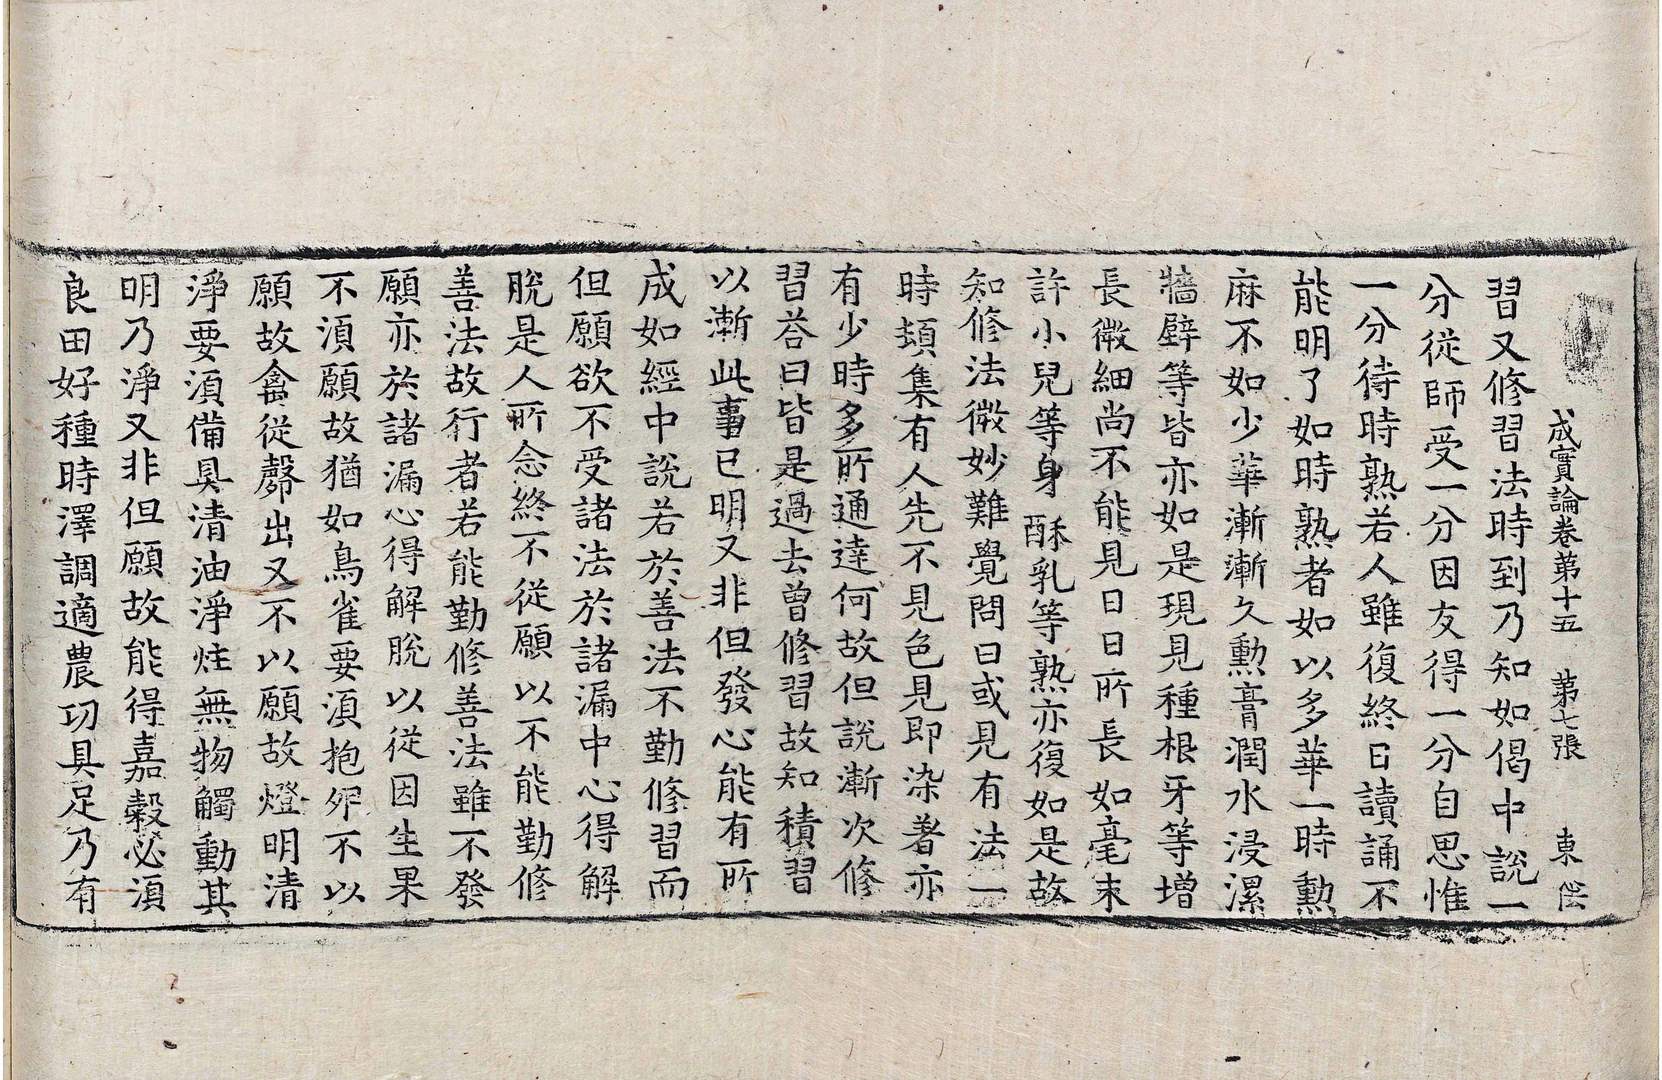 成實論卷第十五 第七張 東
習又修習法時到乃知如偈中說一
分從師受一分因友得一分自思惟
一分待時熟若人雖復終日讀誦不
能明了如時熟者如以多華一時勲
麻不如少華漸漸久勲膏潤水浸漯
牆壁等皆亦如是現見種根牙等增
長微細尚不能見日日所長如毫末
許小兒等身酥乳等熟亦復如是故
知修法微妙難覺問曰或見有法一
時頓集有人先不見色見即染著亦
有少時多所通達何故但說漸次修
習荅曰皆是過去曾修習故知積習
以漸此事已明又非但發心能有所
成如經中說若於善法不勤修習而
但願欲不受諸法於諸漏中心得解
脫是人所念終不從願以不能勤修
善法故行者若能勤修善法雖不發
願亦於諸漏心得解脫以從因生果
不湏願故猶如鳥雀要湏抱夘不以
願故禽從㲉出又不以願故燈明清
淨要湏備具清油淨炷無物觸動其
明乃淨又非但願故能得嘉穀必湏
良田好種時澤調適農功具足乃有